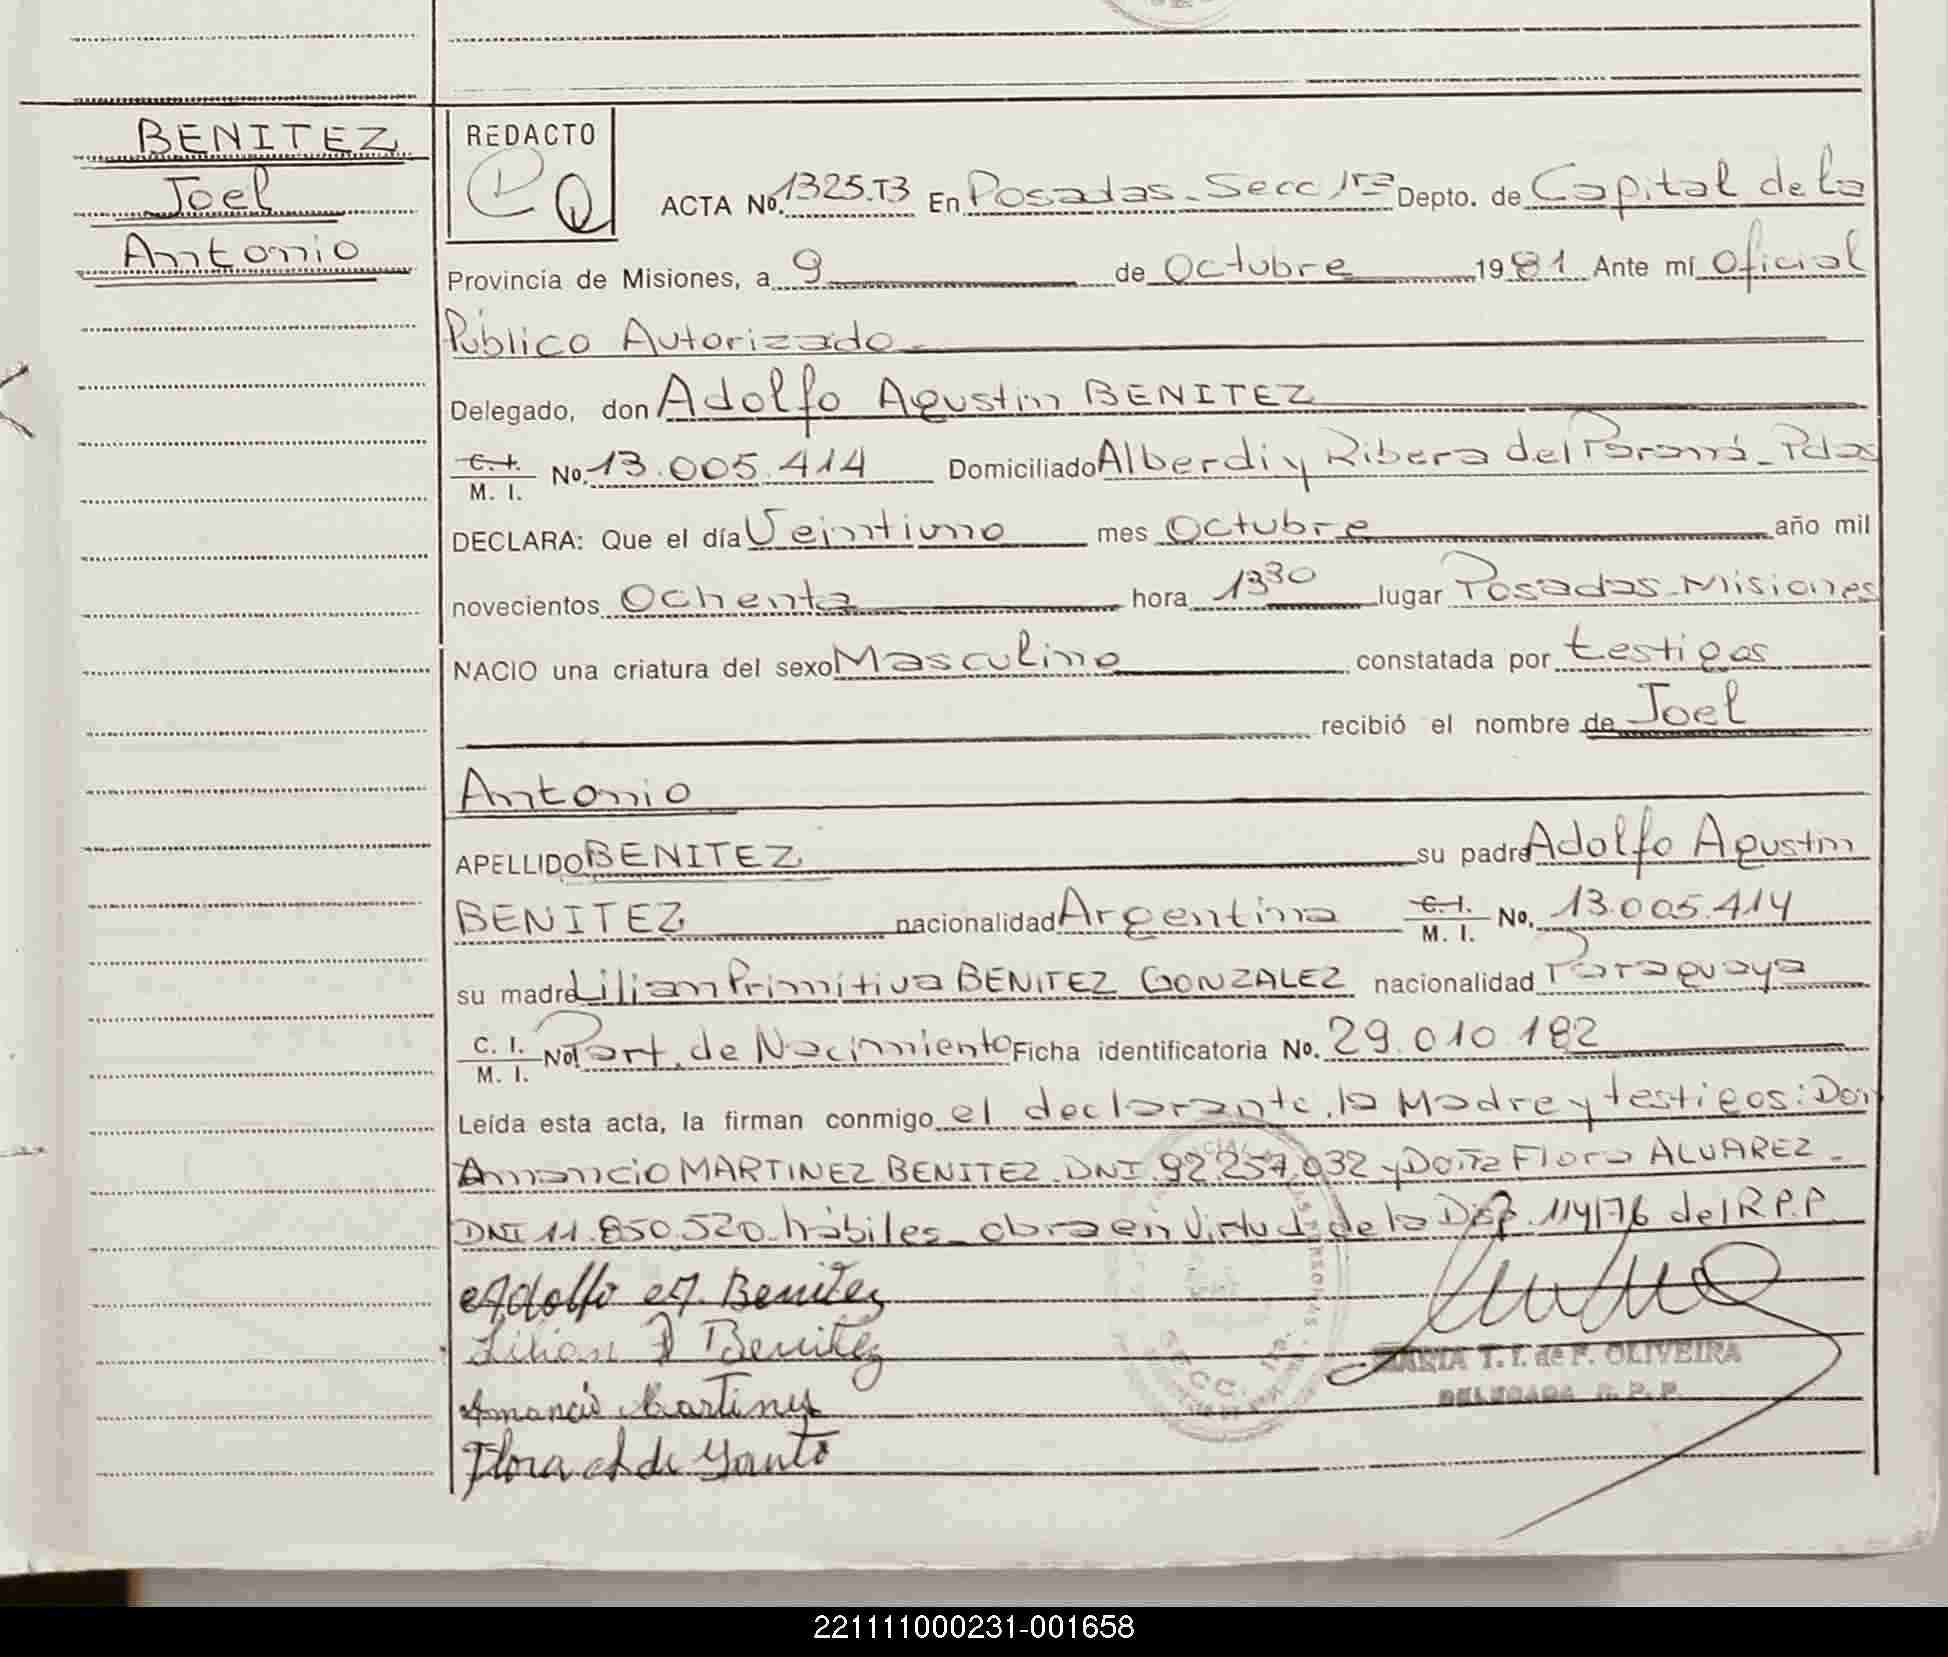 BENITEZ
Joel
Antonio
REDACTO
ACTA No. 1325.T3 En Posadas - Secc 1ra Depto. de Capital de la
Provincia de Misiones, a 9 de Octubre 1981 Ante mí Oficial
Público Autorizado.
Delegado, don Adolfo Agustin BENITEZ
C.I. M. I. No. 13.005.414 Domiciliado Alberdi y Ribera del Paraná - Pdas
DECLARA: Que el día Veintiuno mes Octubre año mil
novecientos Ochenta hora 13 30 lugar Posadas - Misiones
NACIO una criatura del sexo Masculino constatada por testigos
recibió el nombre de Joel
Antonio
APELLIDO BENITEZ su padre Adolfo Agustin
BENITEZ nacionalidad Argentina C.I. M. I. No. 13.005.414
su madre Lilian Primitiva BENITEZ GONZALEZ nacionalidad Paraguaya
C. I. M. I. No. Part. de Nacimiento Ficha identificatoria No. 29.010.182
Leída esta acta, la firman conmigo el declarante, la Madre y testigos: Don
Amancio MARTINEZ BENITEZ. DNI. 92.257.032 y Doña Flora ALVAREZ -
DNI 11.850.520 - hábiles - obra en virtud de la Disp. 114/76 del R.P.P.
Adolfo A. Benitez
Lilian P Benitez
Amancio Martinez
Flora A de
MARIA T. I. de F. OLIVEIRA
DELEGADA R. P. P.
221111000231-001658